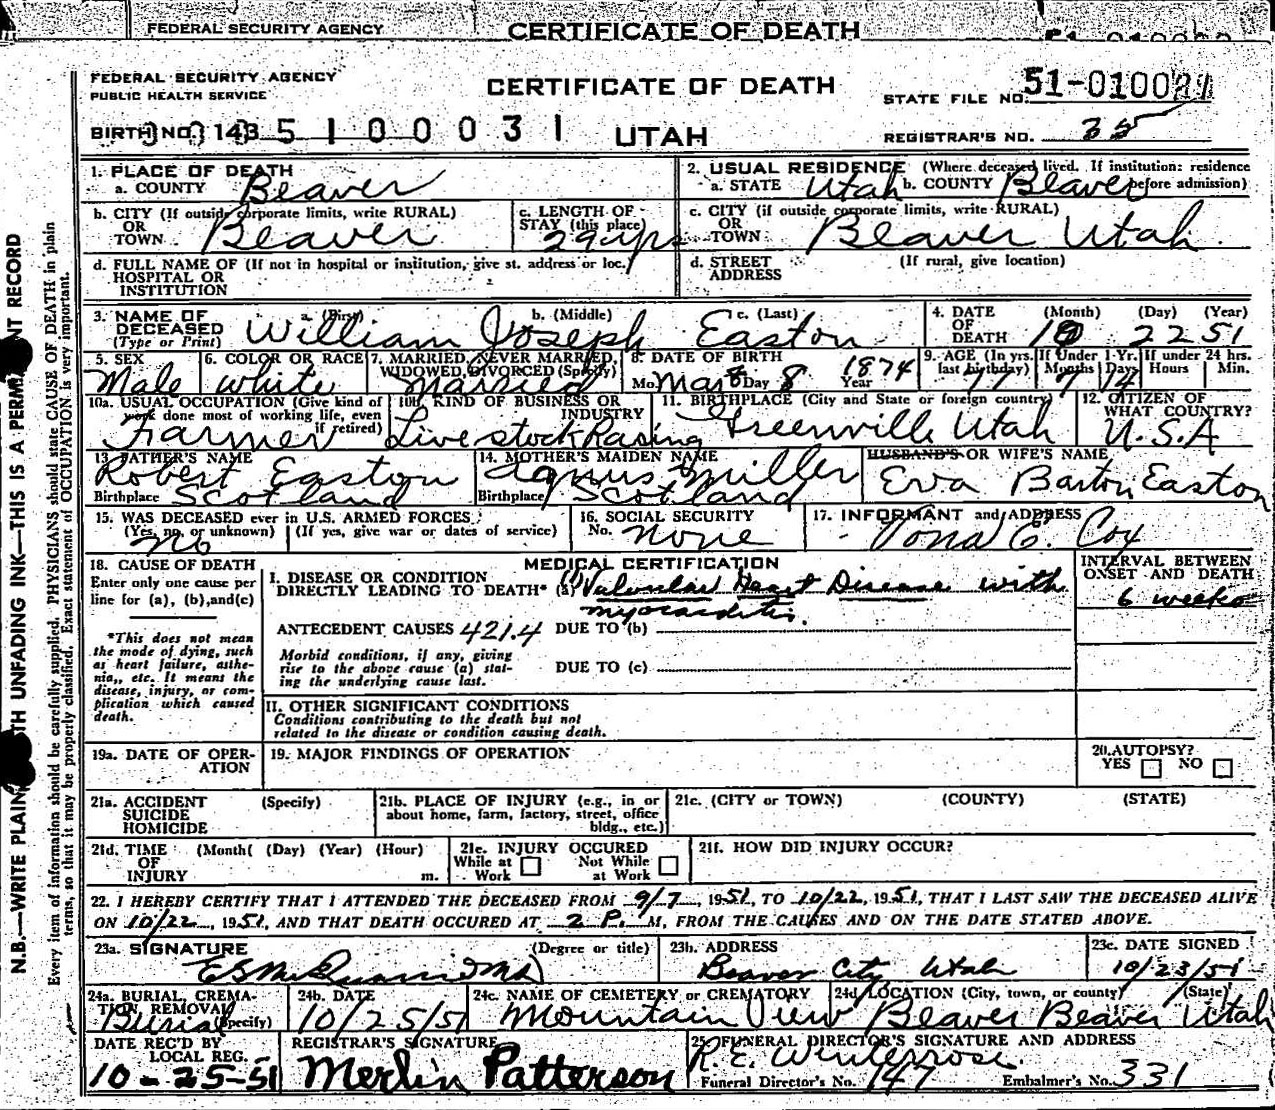 FEDERAL SECURITY AGENCY CERTIFICATE OF DEATH
FEDERAL SECURITY AGENCY
PUBLIC HEALTH SERVICE
CERTIFICATE OF DEATH
STATE FILE NO. 51-010031
BIRTH NO. 143 5100031 UTAH REGISTRAR'S NO. 35
1. PLACE OF DEATH
a. COUNTY Beaver
2. USUAL RESIDENCE (Where deceased lived. If institution: residence before admission)
a. STATE Utah b. COUNTY Beaver
b. CITY (If outside corporate limits, write RURAL)
OR
TOWN Beaver
c. LENGTH OF
STAY (this place)
29 yrs
c. CITY (if outside corporate limits, write RURAL)
OR
TOWN Beaver Utah
d. FULL NAME OF (If not in hospital or institution, give st. address or loc.)
HOSPITAL OR
INSTITUTION
d. STREET (If rural, give location)
ADDRESS
3. NAME OF
DECEASED
(Type or Print)
a. (First) b. (Middle) c. (Last)
William Joseph Easton
4. DATE (Month) (Day) (Year)
OF
DEATH 10 22 51
5. SEX
Male
6. COLOR OR RACE
white
7. MARRIED, NEVER MARRIED,
WIDOWED, DIVORCED (Specify)
Married
8. DATE OF BIRTH
Mo. Mar Day 8 Year 1874
9. AGE (In yrs. last birthday) If Under 1 Yr. If under 24 hrs.
Months Days Hours Min.
77 7 14
10a. USUAL OCCUPATION (Give kind of
work done most of working life, even
if retired)
Farmer
10b. KIND OF BUSINESS OR
INDUSTRY
Livestock Rasing
11. BIRTHPLACE (City and State or foreign country)
Greenville Utah
12. CITIZEN OF
WHAT COUNTRY?
U.S.A
13. FATHER'S NAME
Robert Easton
Birthplace Scotland
14. MOTHER'S MAIDEN NAME
Agnus Miller
Birthplace Scotland
HUSBAND'S OR WIFE'S NAME
Eva Barton Easton
15. WAS DECEASED ever in U.S. ARMED FORCES
(Yes, no, or unknown) (If yes, give war or dates of service)
no
16. SOCIAL SECURITY
No. none
17. INFORMANT and ADDRESS
E. Cox
18. CAUSE OF DEATH
Enter only one cause per
line for (a), (b), and (c)
*This does not mean
the mode of dying, such
as heart failure, asthe-
nia,, etc. It means the
disease, injury, or com-
plication which caused
death.
MEDICAL CERTIFICATION
I. DISEASE OR CONDITION
DIRECTLY LEADING TO DEATH* (a) Valvular Heart Disease with
myocarditis.
ANTECEDENT CAUSES 421.4 DUE TO (b)
Morbid conditions, if any, giving
rise to the above cause (a) stat-
ing the underlying cause last.
DUE TO (c)
INTERVAL BETWEEN
ONSET AND DEATH
6 weeks
II. OTHER SIGNIFICANT CONDITIONS
Conditions contributing to the death but not
related to the disease or condition causing death.
19a. DATE OF OPER-
ATION
19. MAJOR FINDINGS OF OPERATION
20. AUTOPSY?
YES NO
21a. ACCIDENT (Specify)
SUICIDE
HOMICIDE
21b. PLACE OF INJURY (e.g., in or
about home, farm, factory, street, office
bldg., etc.)
21c. (CITY or TOWN) (COUNTY) (STATE)
21d. TIME (Month( (Day) (Year) (Hour)
OF
INJURY m.
21e. INJURY OCCURED
While at Work Not While at Work
21f. HOW DID INJURY OCCUR?
22. I HEREBY CERTIFY THAT I ATTENDED THE DECEASED FROM 9/7, 1951, TO 10/22, 1951, THAT I LAST SAW THE DECEASED ALIVE
ON 10/22, 1951, AND THAT DEATH OCCURED AT 2 P. M, FROM THE CAUSES AND ON THE DATE STATED ABOVE.
23a. SIGNATURE (Degree or title)
MD
23b. ADDRESS
Beaver City Utah
23c. DATE SIGNED
10/23/51
24a. BURIAL, CREMA-
TION, REMOVAL
(Specify)
Burial
24b. DATE
10/25/51
24c. NAME OF CEMETERY or CREMATORY
Mountain View
24d. LOCATION (City, town, or county) (State)
Beaver Beaver Utah
DATE REC'D BY
LOCAL REG.
10-25-51
REGISTRAR'S SIGNATURE
Merlin Patterson
25. FUNERAL DIRECTOR'S SIGNATURE AND ADDRESS
R.E. Winterrose.
Funeral Director's No. 147 Embalmer's No. 331
N.B.—WRITE PLAIN TH UNFADING INK—THIS IS A PERMA NT RECORD
Every item of information should be carefully supplied. PHYSICIANS should state CAUSE OF DEATH in plain
terms, so that it may be properly classified. Exact statement of OCCUPATION is very important.